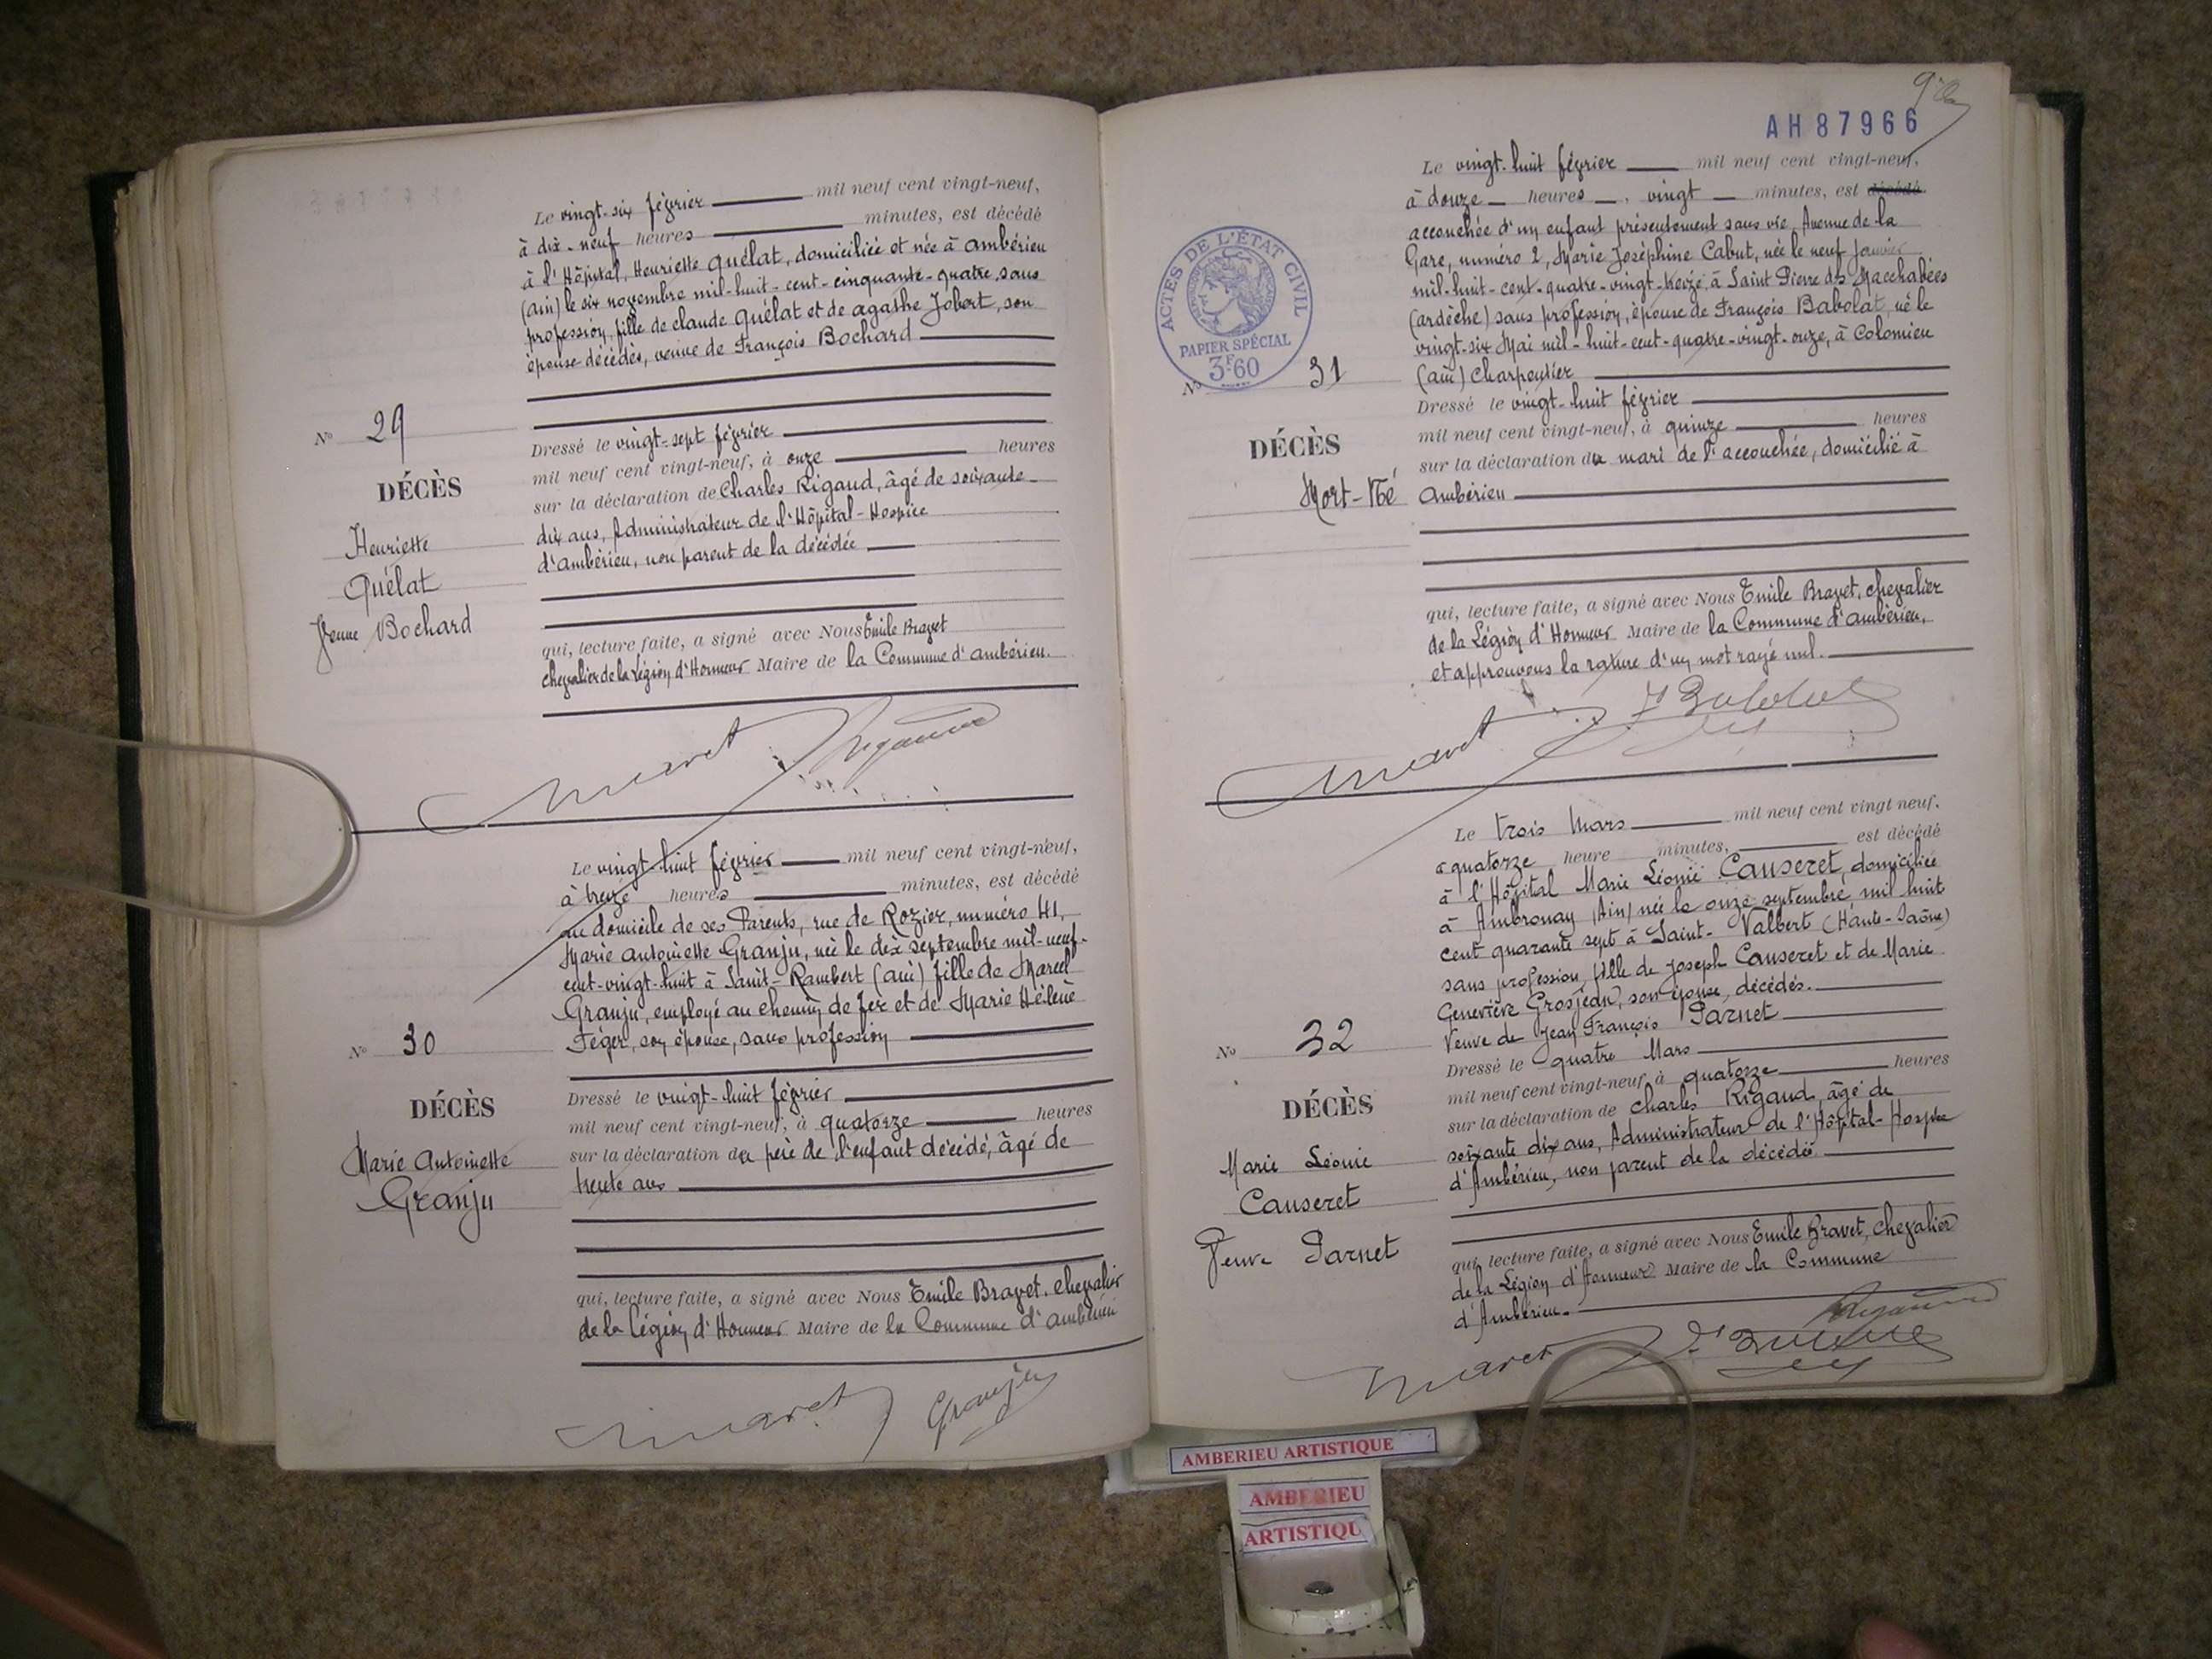 Le vingt-six février mil neuf cent vingt-neuf,
à dix-neuf heures minutes, est décédé
à l'Hôpital, Henriette Quélat, domiciliée et née à Ambérieu
(ain) le six novembre mil-huit-cent-cinquante-quatre, sans
profession, fille de claude Quélat et de agathe Jobert, son
épouse décédés, veuve de François Bochard
Nº 29
DÉCÈS
Henriette
Quélat
Veuve Bochard
Dressé le vingt-sept février
mil neuf cent vingt-neuf, à onze heures
sur la déclaration de Charles Rigaud, âgé de soixante-
dix ans, Administrateur de l'Hôpital-Hospice
d'ambérieu, non parent de la décédée
qui, lecture faite, a signé avec Nous Emile Bravet
chevalier de la Légion d'Honneur Maire de la Commune d'ambérieu.
Le vingt-huit février mil neuf cent vingt-neuf,
à treize heures minutes, est décédé
au domicile de ses Parents, rue de Rozier, numéro 41,
Marie Antoinette Granju, née le dix septembre mil-neuf-
cent-vingt-huit à Saint-Rambert (ain) fille de Marcel
Granju, employé au chemin de fer et de Marie Hélène
Féger, son épouse, sans profession
Nº 30
DÉCÈS
Marie Antoinette
Granju
Dressé le vingt-huit février
mil neuf cent vingt-neuf, à quatorze heures
sur la déclaration du père de l'enfant décédé, âgé de
trente ans
qui, lecture faite, a signé avec Nous Emile Bravet, chevalier
de la Légion d'Honneur Maire de la Commune d'ambérieu
Granju
AH 87966
Le vingt-huit février mil neuf cent vingt-neuf,
à douze heures, vingt minutes, est décédé
accouchée d'un enfant présentement sans vie, Avenue de la
Gare, numéro 2, Marie Joséphine Cabut, née le neuf Janvier
mil-huit-cent-quatre-vingt-treize, à Saint Pierre des Macchabées
(ardèche) sans profession, épouse de François Babolat, né le
vingt-six Mai mil-huit-cent-quatre-vingt-onze, à Colomieu
(ain) Charpentier
ACTES DE L'ÉTAT CIVIL
PAPIER SPÉCIAL
3F60
Nº 31
DÉCÈS
Mort-Né
Dressé le vingt-huit février
mil neuf cent vingt-neuf, à quinze heures
sur la déclaration du mari de l'accouchée, domicilié à
Ambérieu
qui, lecture faite, a signé avec Nous Emile Bravet, chevalier
de la Légion d'Honneur Maire de la Commune d'ambérieu,
et approuvons la rature d'un mot rayé nul.
Le trois Mars mil neuf cent vingt neuf,
a quatorze heure minutes, est décédé
à l'Hôpital Marie Léonie Causeret, domiciliée
à Ambronay (Ain) née le onze septembre mil huit
cent quarante sept à Saint-Valbert (Haute-Saône)
sans profession, fille de Joseph Causeret et de Marie
Geneviève Grosjean, son épouse, décédés.
Veuve de Jean François Parnet
Nº 32
DÉCÈS
Marie Léonie
Causeret
Veuve Parnet
Dressé le quatre Mars
mil neuf cent vingt-neuf à quatorze heures
sur la déclaration de Charles Rigaud, âgé de
soixante dix ans, Administrateur de l'Hôpital-Hospice
d'Ambérieu, non parent de la décédée
qui, lecture faite, a signé avec Nous Emile Bravet, Chevalier
de la Légion d'honneur Maire de la Commune
d'Ambérieu.
AMBERIEU ARTISTIQUE
AMBERIEU
ARTISTIQU